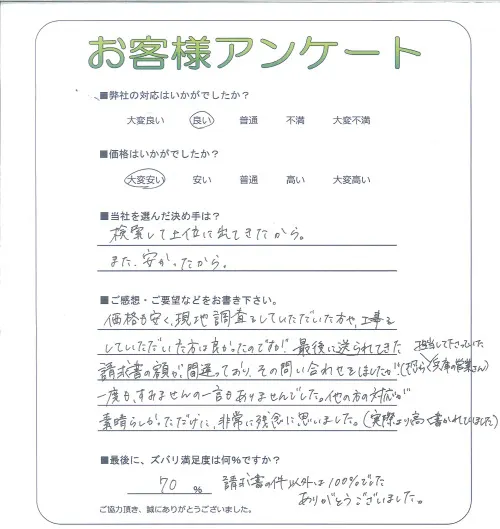 お客様アンケート
■弊社の対応はいかがでしたか？
大変良い 良い 普通 不満 大変不満
■価格はいかがでしたか？
大変安い 安い 普通 高い 大変高い
■当社を選んだ決め手は？
検索して上位に出てきたから。
また、安かったから。
■ご感想・ご要望などをお書き下さい。
価格も安く、現地調査をしていただいた方や、工事を
していただいた方は良かったのですが、最後に送られてきた
請求書の額が間違っており、その問い合わせをしましたが
担当して下さっていた
兵庫の営業さん)
一度も、すみませんの一言もありませんでした。他の方の対応が
素晴らしかっただけに、非常に残念に思いました。(実際より高く書かれていました)
■最後に、ズバリ満足度は何%ですか？
70 % 請求書の件以外は100%でした
ありがとうございました。
ご協力頂き、誠にありがとうございました。